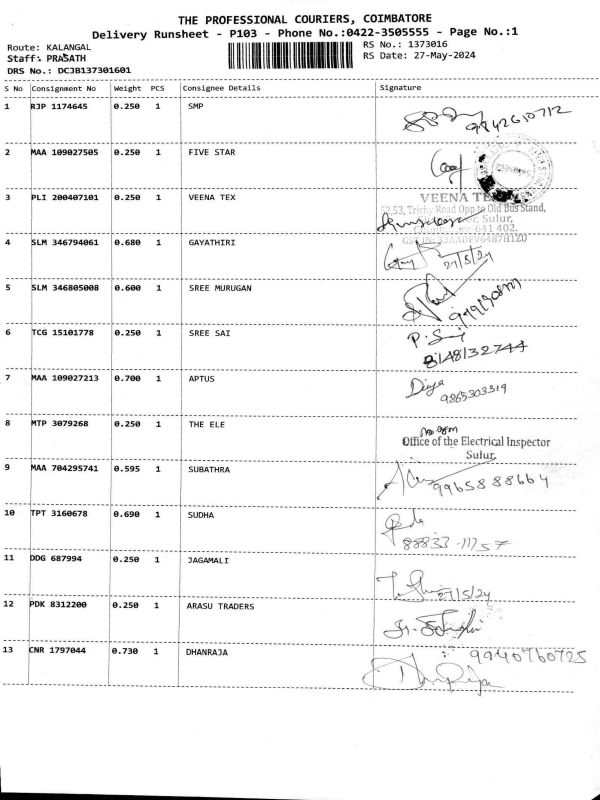 THE PROFESSIONAL COURIERS, COIMBATORE
Delivery Runsheet - P103 - Phone No.:0422-3505555 - Page No.:1
Route: KALANGAL RS No.: 1373016
Staff: PRASATH RS Date: 27-May-2024
DRS No.: DCJB137301601
S No Consignment No Weight PCS Consignee Details Signature
1 RJP 1174645 0.250 1 SMP 9842610712
2 MAA 109027505 0.250 1 FIVE STAR
3 PLI 200407101 0.250 1 VEENA TEX
VEENA TEX
52,53, Trichy Road Opp to Old Bus Stand,
Sulur,
641 402.
4 SLM 346794061 0.680 1 GAYATHIRI
27/5/24
5 SLM 346805008 0.600 1 SREE MURUGAN
6 TCG 15101778 0.250 1 SREE SAI
8148132744
7 MAA 109027213 0.700 1 APTUS Divya
9865303319
8 MTP 3079268 0.250 1 THE ELE
Office of the Electrical Inspector
Sulur.
9 MAA 704295741 0.595 1 SUBATHRA
9965888664
10 TPT 3160678 0.690 1 SUDHA
88833-11157
11 DDG 687994 0.250 1 JAGAMALI
27/5/24
12 PDK 8312200 0.250 1 ARASU TRADERS
13 CNR 1797044 0.730 1 DHANRAJA 9940760725